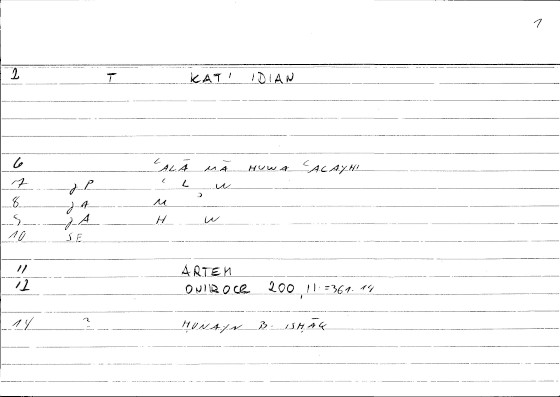 1
2 T KAT' IDIAN
6 ʿALĀ MĀ HUWA ʿALAYHI
7 gP ʿ L W
8 gA M ʾ
9 gA H W
10 SE
11 ARTEM
12 ONIROCR 200, 11 = 361.14
14 ? ḤUNAYN B. ISḤĀQ